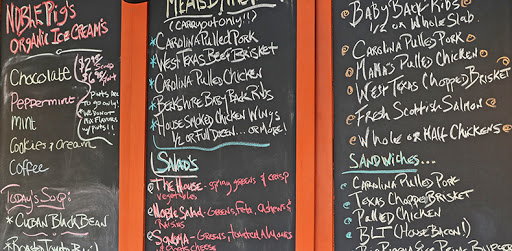 Noble Pig's
Organic Ice Cream's
Chocolate
Peppermint
Mint
Cookies & Cream
Coffee
$2.95 Scoop
Pints are
to go only!
Today's Soup:
*Cuban Black Bean
Meats
(Carryout only!!)
*Carolina Pulled Pork
*West Texas Beef Brisket
*Carolina Pulled Chicken
*Berkshire Baby Back Ribs
*House Smoked Chicken Wings
1/2 or Full Dozen... or more!
Salad's
The House - spring greens & crisp
vegetables
Noble Salad - Greens, Feta,
Raisins
Sonoma - Greens, Toasted Almonds
Cheese
Baby Back Ribs
1/2 or Whole Slab
Carolina Pulled Pork
Mama's Pulled Chicken
West Texas (Chopped) Brisket
Fresh Scottish Salmon
Whole or Half Chickens
Sandwiches...
Carolina Pulled Pork
Texas Chopped Brisket
Pulled Chicken
BLT (House Bacon!)